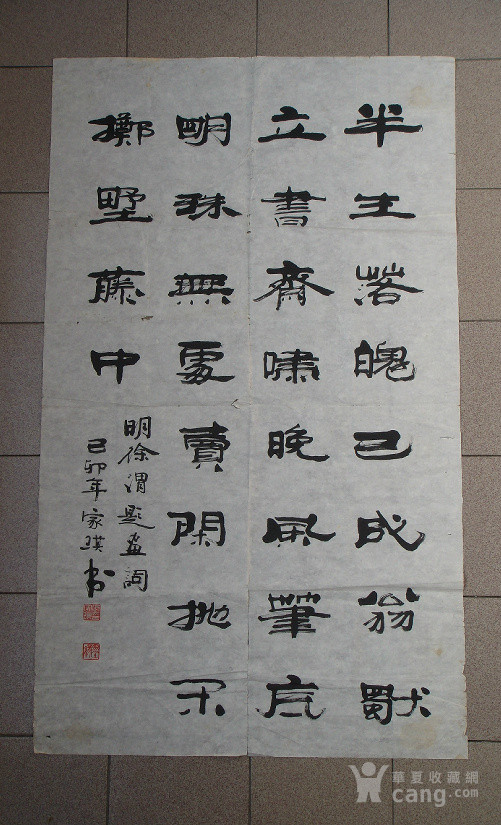 半生落魄已成翁獨
立書齋嘯晚風筆底
明珠無處賣閑拋閑
擲野藤中
明徐渭題畫詞
己卯年家琪书
華夏收藏網
cang.com